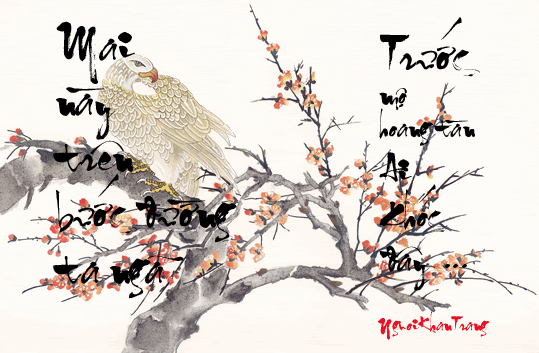 Mai
này
trên
bước đường
ta ngã
Trước
mộ
hoang tàn
Ai
khóc
đây ...
NgườiKhănTrắng